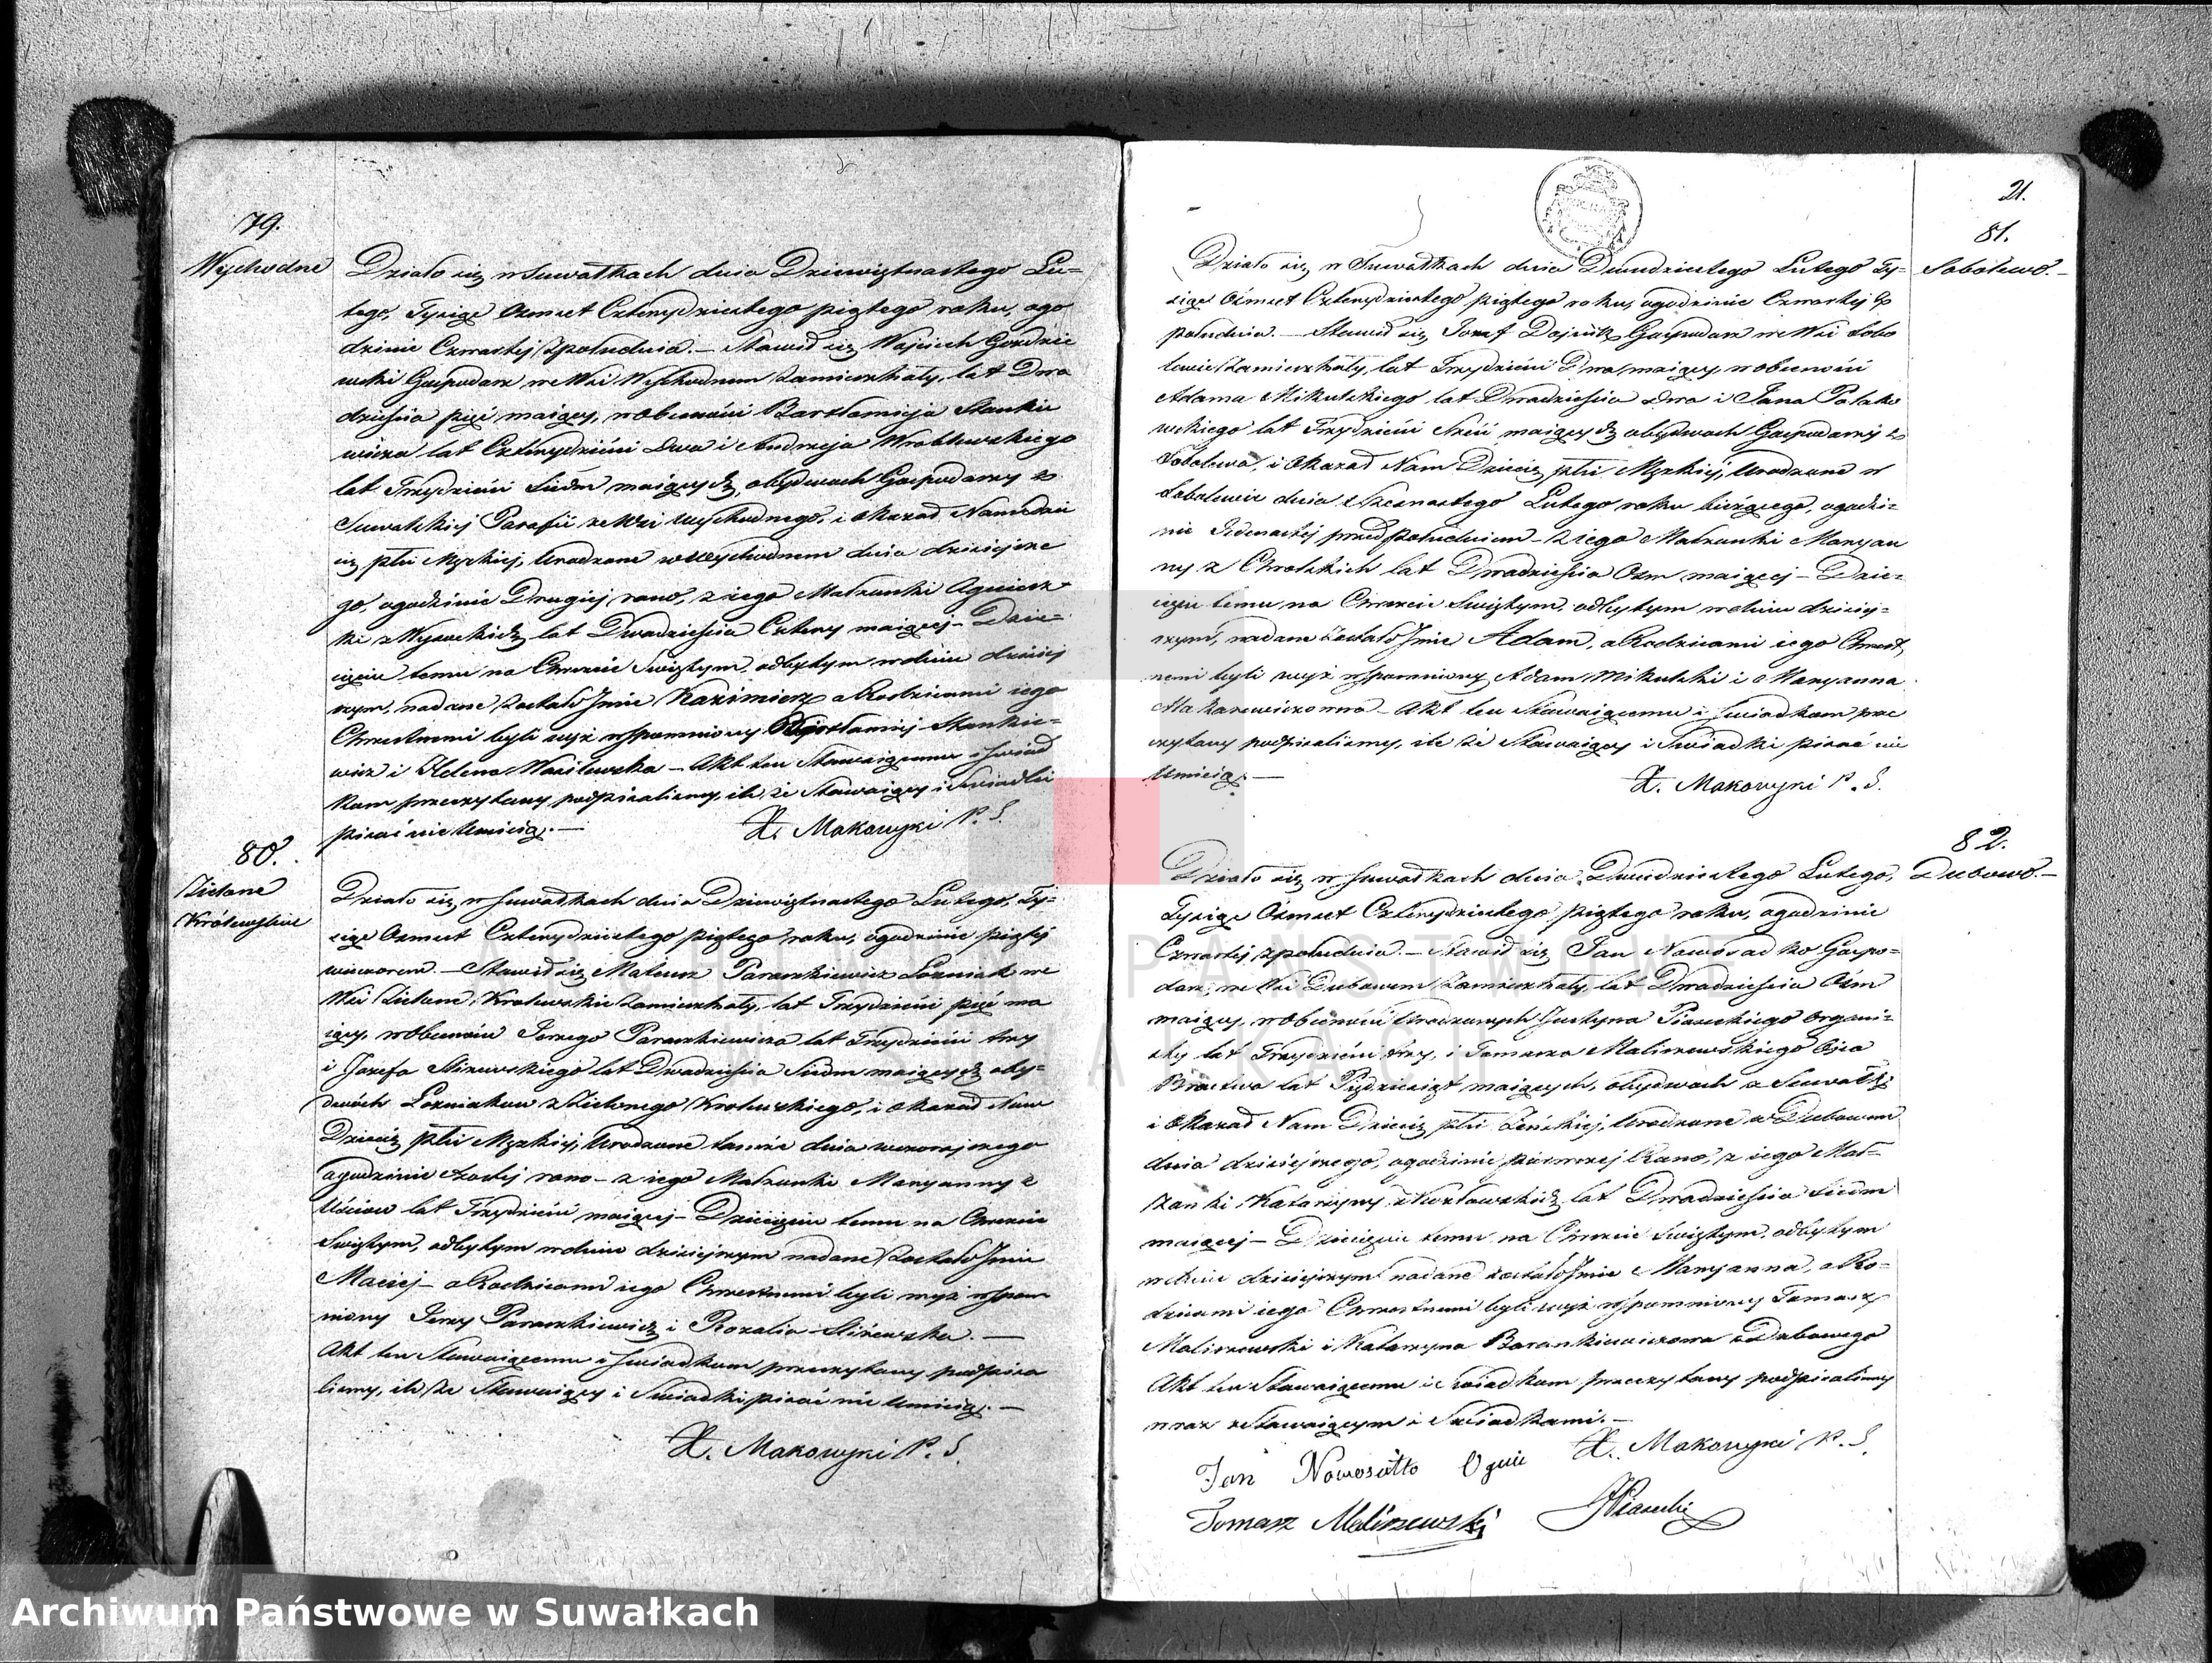 79.
Wychodne
Działo się w Suwałkach dnia Dziewiętnastego Lu-
tego, Tysiąc Ośmset Czterydziestego piątego roku, ogo
dzinie Czwartej z południa. — Stawił się Wojciech Gozdzie
wski Gospodarz we Wsi Wychodnem zamieszkały, lat Dwa
dzieścia pięć maiący, w obecności Bartłomieja Stankie
wicza lat Czterydzieści dwa i Andrzeja Wroblewskiego
lat Trzydzieści Siedm maiących, obydwóch Gospodarzy z
Suwalskiej Parafii ze Wsi Wychodnego, i okazał Nam dzie
cię płci Męzkiej, Urodzone w Wychodnem dnia dzisiejsze
go, ogodzinie Drugiej rano, z iego Małżonki Agniesz-
ki z Wysockich lat Dwadzieścia Cztery maiącej — Dzie-
cięciu temu na Chrzcie Świętym, odbytym w dniu dzisiej
szym, nadane zostało Imie Kazimierz, a Rodzicami iego
Chrzestnemi byli wyż wspomniony Bartłomiej Stankie-
wicz i Helena Wasilewska — Akt ten Stawaiącemu i Świad
kom przeczytany podpisaliśmy, ile że Stawaiący i Świadki
pisać nie Umieią. —
X. Makowski P. S.
80.
Zielone
Królewskie
Działo się w Suwałkach dnia Dziewiętnastego Lutego, Ty-
siąc Ośmset Czterydziestego piątego roku, ogodzinie piątej
wieczorem. — Stawił się Mateusz Paraszkiewicz Loźniak we
Wsi Zielone Krolewskie zamieszkały, lat Trzydzieści pięć ma
iący, w obecności Jerzego Paraszkiewicza lat Trzydzieści trzy
i Józefa lat Dwadzieścia Siedm maiących oby-
dwóch Loźniakow z Zielonego Krolewskiego, i okazał Nam
Dziecię płci Męzkiej, Urodzone tamże dnia wczorajszego
ogodzinie szostej rano — z iego Małżonki Maryanny z
lat Trzydzieści maiącej — Dziecięciu temu na Chrzcie
Świętym, odbytym w dniu dzisiejszym nadane zostało Imie
Maciej — a Rodzicami iego Chrzestnemi byli wyż wspom
niony Jerzy Paraszkiewicz i Rozalia —
Akt ten Stawaiącemu i Świadkom przeczytany podpisa
liśmy, ile że Stawaiący i Świadki pisać nie Umieią. —
X. Makowski P. S.
21.
81.
Sobolewo. —
Działo się w Suwałkach dnia Dwudziestego Lutego Ty-
siąc Ośmset Czterydziestego piątego roku, ogodzinie Czwartej z
południa. — Stawił się Jozef Gospodarz we Wsi Sobo
lewie zamieszkały, lat Trzydzieści Dwa maiący, w obecności
Adama Mikulskiego lat Dwadzieścia dwa i Jana Polako
wskiego lat Trzydzieści Sześć maiących obydwoch Gospodarzy z
Sobolewa, i okazał Nam Dziecię płci Męzkiej, Urodzone w
Sobolewie dnia Szesnastego Lutego roku bieżącego, ogodzi-
nie Jedenastej przed południem — z iego Małżonki Maryan
ny z lat Dwadzieścia Ośm maiącej — Dzie-
cięciu temu na Chrzcie Świętym, odbytym w dniu dzisiej-
szym, nadane zostało Imie Adam, a Rodzicami iego Chrzest
nemi byli wyż wspomniony Adam Mikulski i Maryanna
Makarewiczowna — Akt ten Stawaiącemu i Świadkom prze
czytany podpisaliśmy, ile że Stawaiący i Świadki pisać nie
Umieią. —
X. Makowski P. S.
82.
Dubowo. —
Działo się w Suwałkach dnia Dwudziestego Lutego,
Tysiąc Ośmset Czterydziestego piątego roku, ogodzinie
Czwartej z południa. — Stawił się Jan Nowosadko Gospo-
darz, we Wsi Dubowem zamieszkały, lat Dwadzieścia Ośm
maiący, w obecności Urodzonych Justyna Piaseckiego Organi-
sty lat Trzydzieści trzy, i Tomasza Maliszewskiego Ojca
Bractwa lat Pięćdziesiąt maiących, obydwóch z Suwałk
i okazał Nam Dziecię płci Żeńskiej, Urodzone w Dubowem
dnia dzisiejszego, ogodzinie pierwszej Rano, z iego Mał-
żonki Katarzyny z Kozłowskich lat Dwadzieścia Siedm
maiącej — Dziecięciu temu na Chrzcie Świętym, odbytym
w dniu dzisiejszym nadane zostało Imie Maryanna, a Ro-
dzicami iego Chrzestnemi byli wyż wspomniony Tomasz
Maliszewski i Katarzyna Barankiewiczowna z Dubowego
Akt ten Stawaiącemu i Świadkom przeczytany podpisaliśmy
wraz z Stawaiącym i Świadkami. —
X. Makowski P. S.
Jan Nowosatko
Tomasz Maliszewski JPiasecki
ARCHIWUM PAŃSTWOWE
W SUWAŁKACH
Archiwum Państwowe w Suwałkach